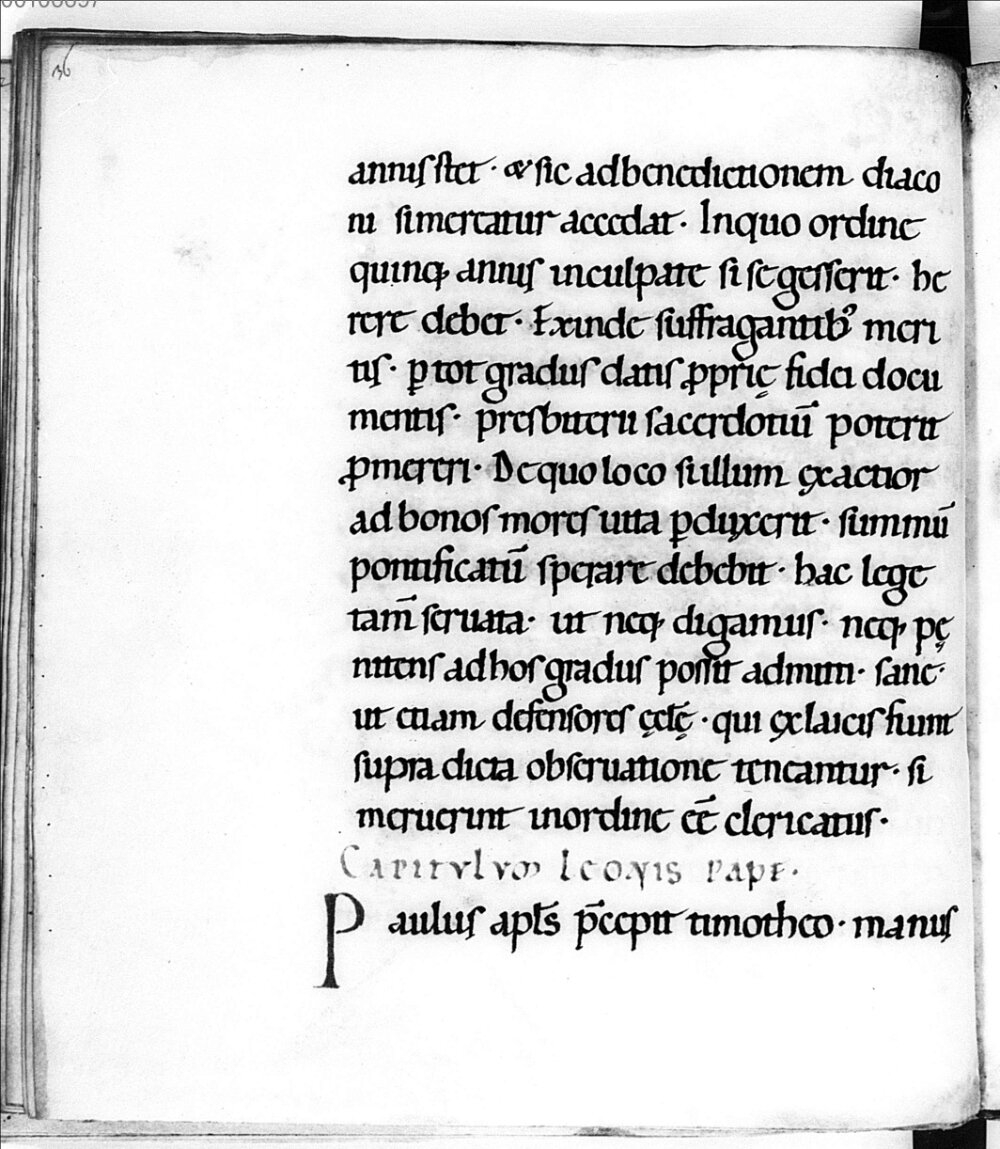 36
annis stet · & sic ad benedictionem diaco
ni si meretur accedat · In quo ordine
quinq; annis inculpate si se gesserit · he
rere debet · Exinde suffragantib; meri
tis · ꝑ tot gradus datis ꝓprię fidei docu
mentis · presbiterii sacerdotiū poterit
ꝓmereri · De quo loco si illum exactior
ad bonos mores uita ꝑduxerit · summū
pontificatū sperare debebit · hac lege
tam̄ seruata · ut neq; digamus · neq; pę
nitens ad hos gradus possit admitti · sane ·
ut etiam defensores ęclę̄ · qui ex laicis fiunt
supra dicta obseruatione teneantur · si
meruerint in ordine eē clericatus ·
Capitulum leonis pape ·
Paulus apl̄s p̄cepit timotheo · manus